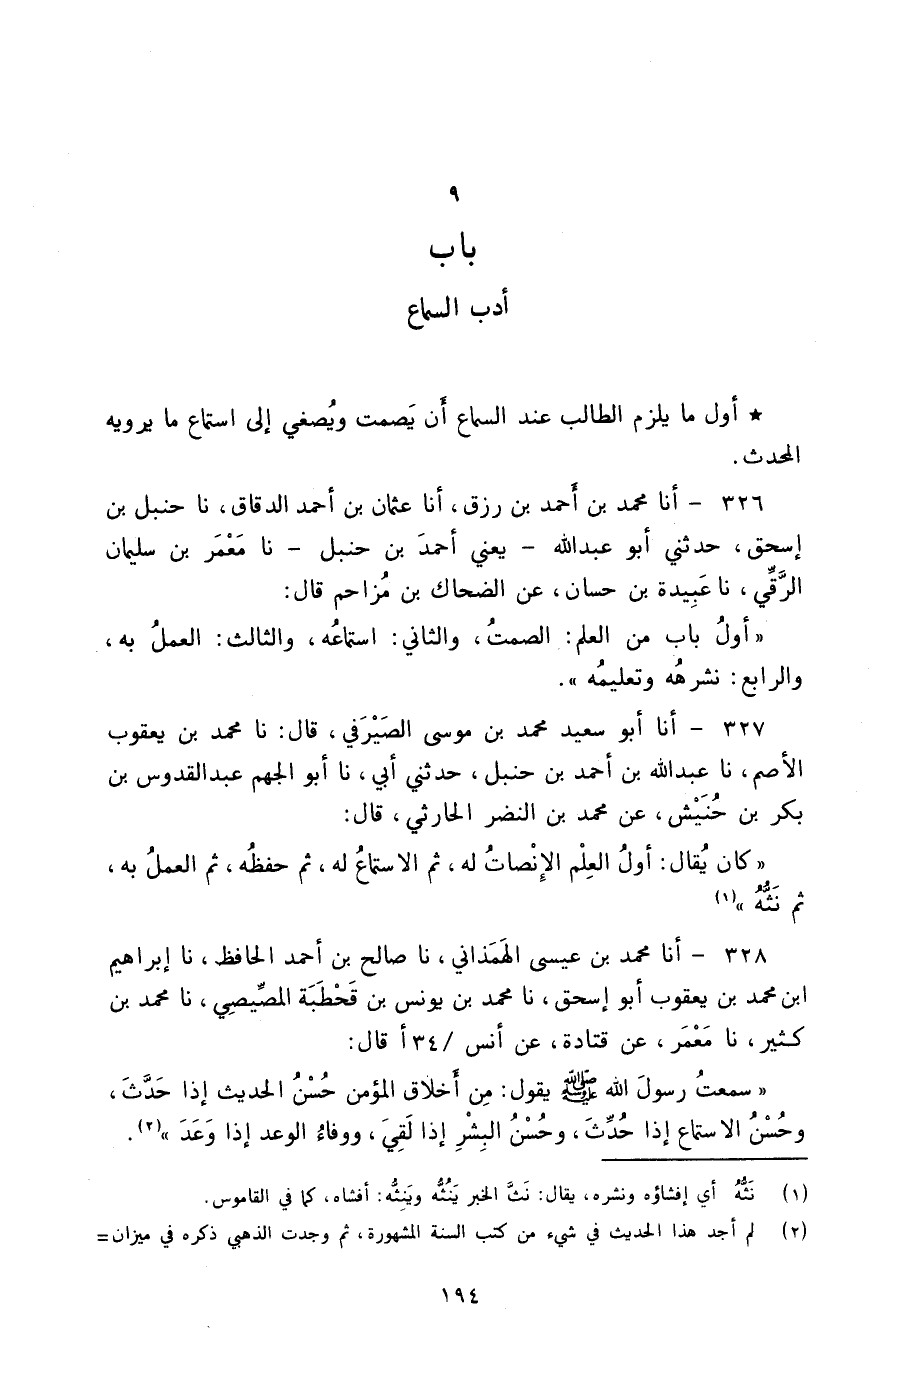 ٩
باب
أدب السماع
★ أول ما يلزم الطالب عند السماع أَن يَصمت ويُصغي إلى استماع ما يرويه
المحدث.
٣٢٦ – أنا محمد بن أَحمد بن رزق، أنا عثمان بن أحمد الدقاق، نا حنبل بن
إسحق، حدثني أبو عبدالله – يعني أحمدَ بن حنبل – نا مَعْمَر بن سليمان
الرَّقِّي، نا عَبِيدة بن حسان، عن الضحاك بن مُزاحم قال:
« أولُ باب من العلم: الصمتُ، والثاني: استماعُه، والثالث: العملُ به،
والرابع: نشرهُه وتعليمُه ».
٣٢٧ – أنا أبو سعيد محمد بن موسى الصَيْرَفي، قال: نا محمد بن يعقوب
الأصم، نا عبدالله بن أحمد بن حنبل، حدثني أبي، نا أبو الجهم عبدالقدوس بن
بكر بن خُنَيْش، عن محمد بن النضر الحارثي، قال:
« كان يُقال: أولُ العِلْم الإِنْصاتُ له، ثم الاستماعُ له، ثم حفظُه، ثم العملُ به،
ثم نَثُّهُ »(١)
٣٢٨ – أنا محمد بن عيسى الهَمَذاني، نا صالح بن أحمد الحافظ، نا إبراهيم
ابن محمد بن يعقوب أبو إسحق، نا محمد بن يونس بن قَحْطَبَة المصِّيصِي، نا محمد بن
كثير، نا مَعْمَر، عن قتادة، عن أنس /٣٤أ قال:
« سمعتُ رسولَ الله ﷺ يقول: مِن أَخلاق المؤمن حُسْنُ الحديث إذا حَدَّثَ،
وحُسْنُ الاستماع إذا حُدِّثَ، وحُسْنُ البِشْرِ إذا لَقِيَ، ووفاءُ الوعد إذا وَعَدَ »(٢).
(١) نَثُّهُ أي إفشاؤه ونشره، يقال: نَثَّ الخبر يَنُثُّه ويَنِثُّه: أفشاه، كما في القاموس.
(٢) لم أجد هذا الحديث في شيء من كتب السنة المشهورة، ثم وجدت الذهبي ذكره في ميزان =
١٩٤